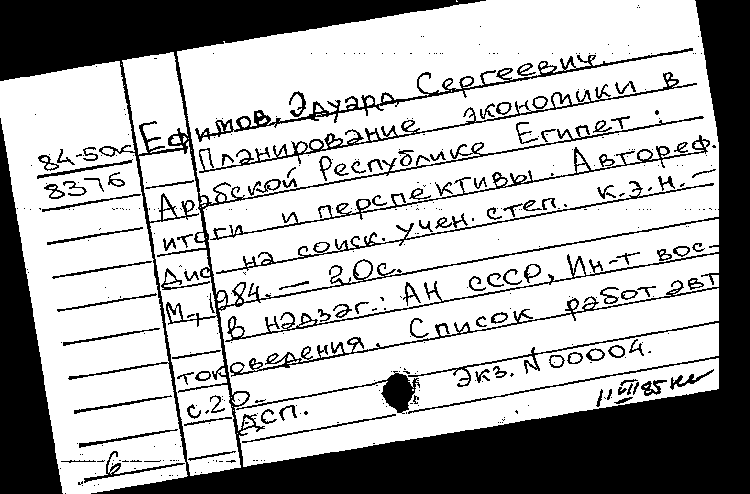 Ефимов, Эдуард Сергеевич.
84-50к
8376
Планирование экономики в
Арабской Республике Египет:
итоги и перспективы. Автореф.
дис на соиск. учен. степ. к.э.н. —
М., 1984. — 20с.
В надзаг.: АН СССР, Ин-т вос-
токоведения. Список работ авт
с.20.
ДСП. Экз. N 00004.
6